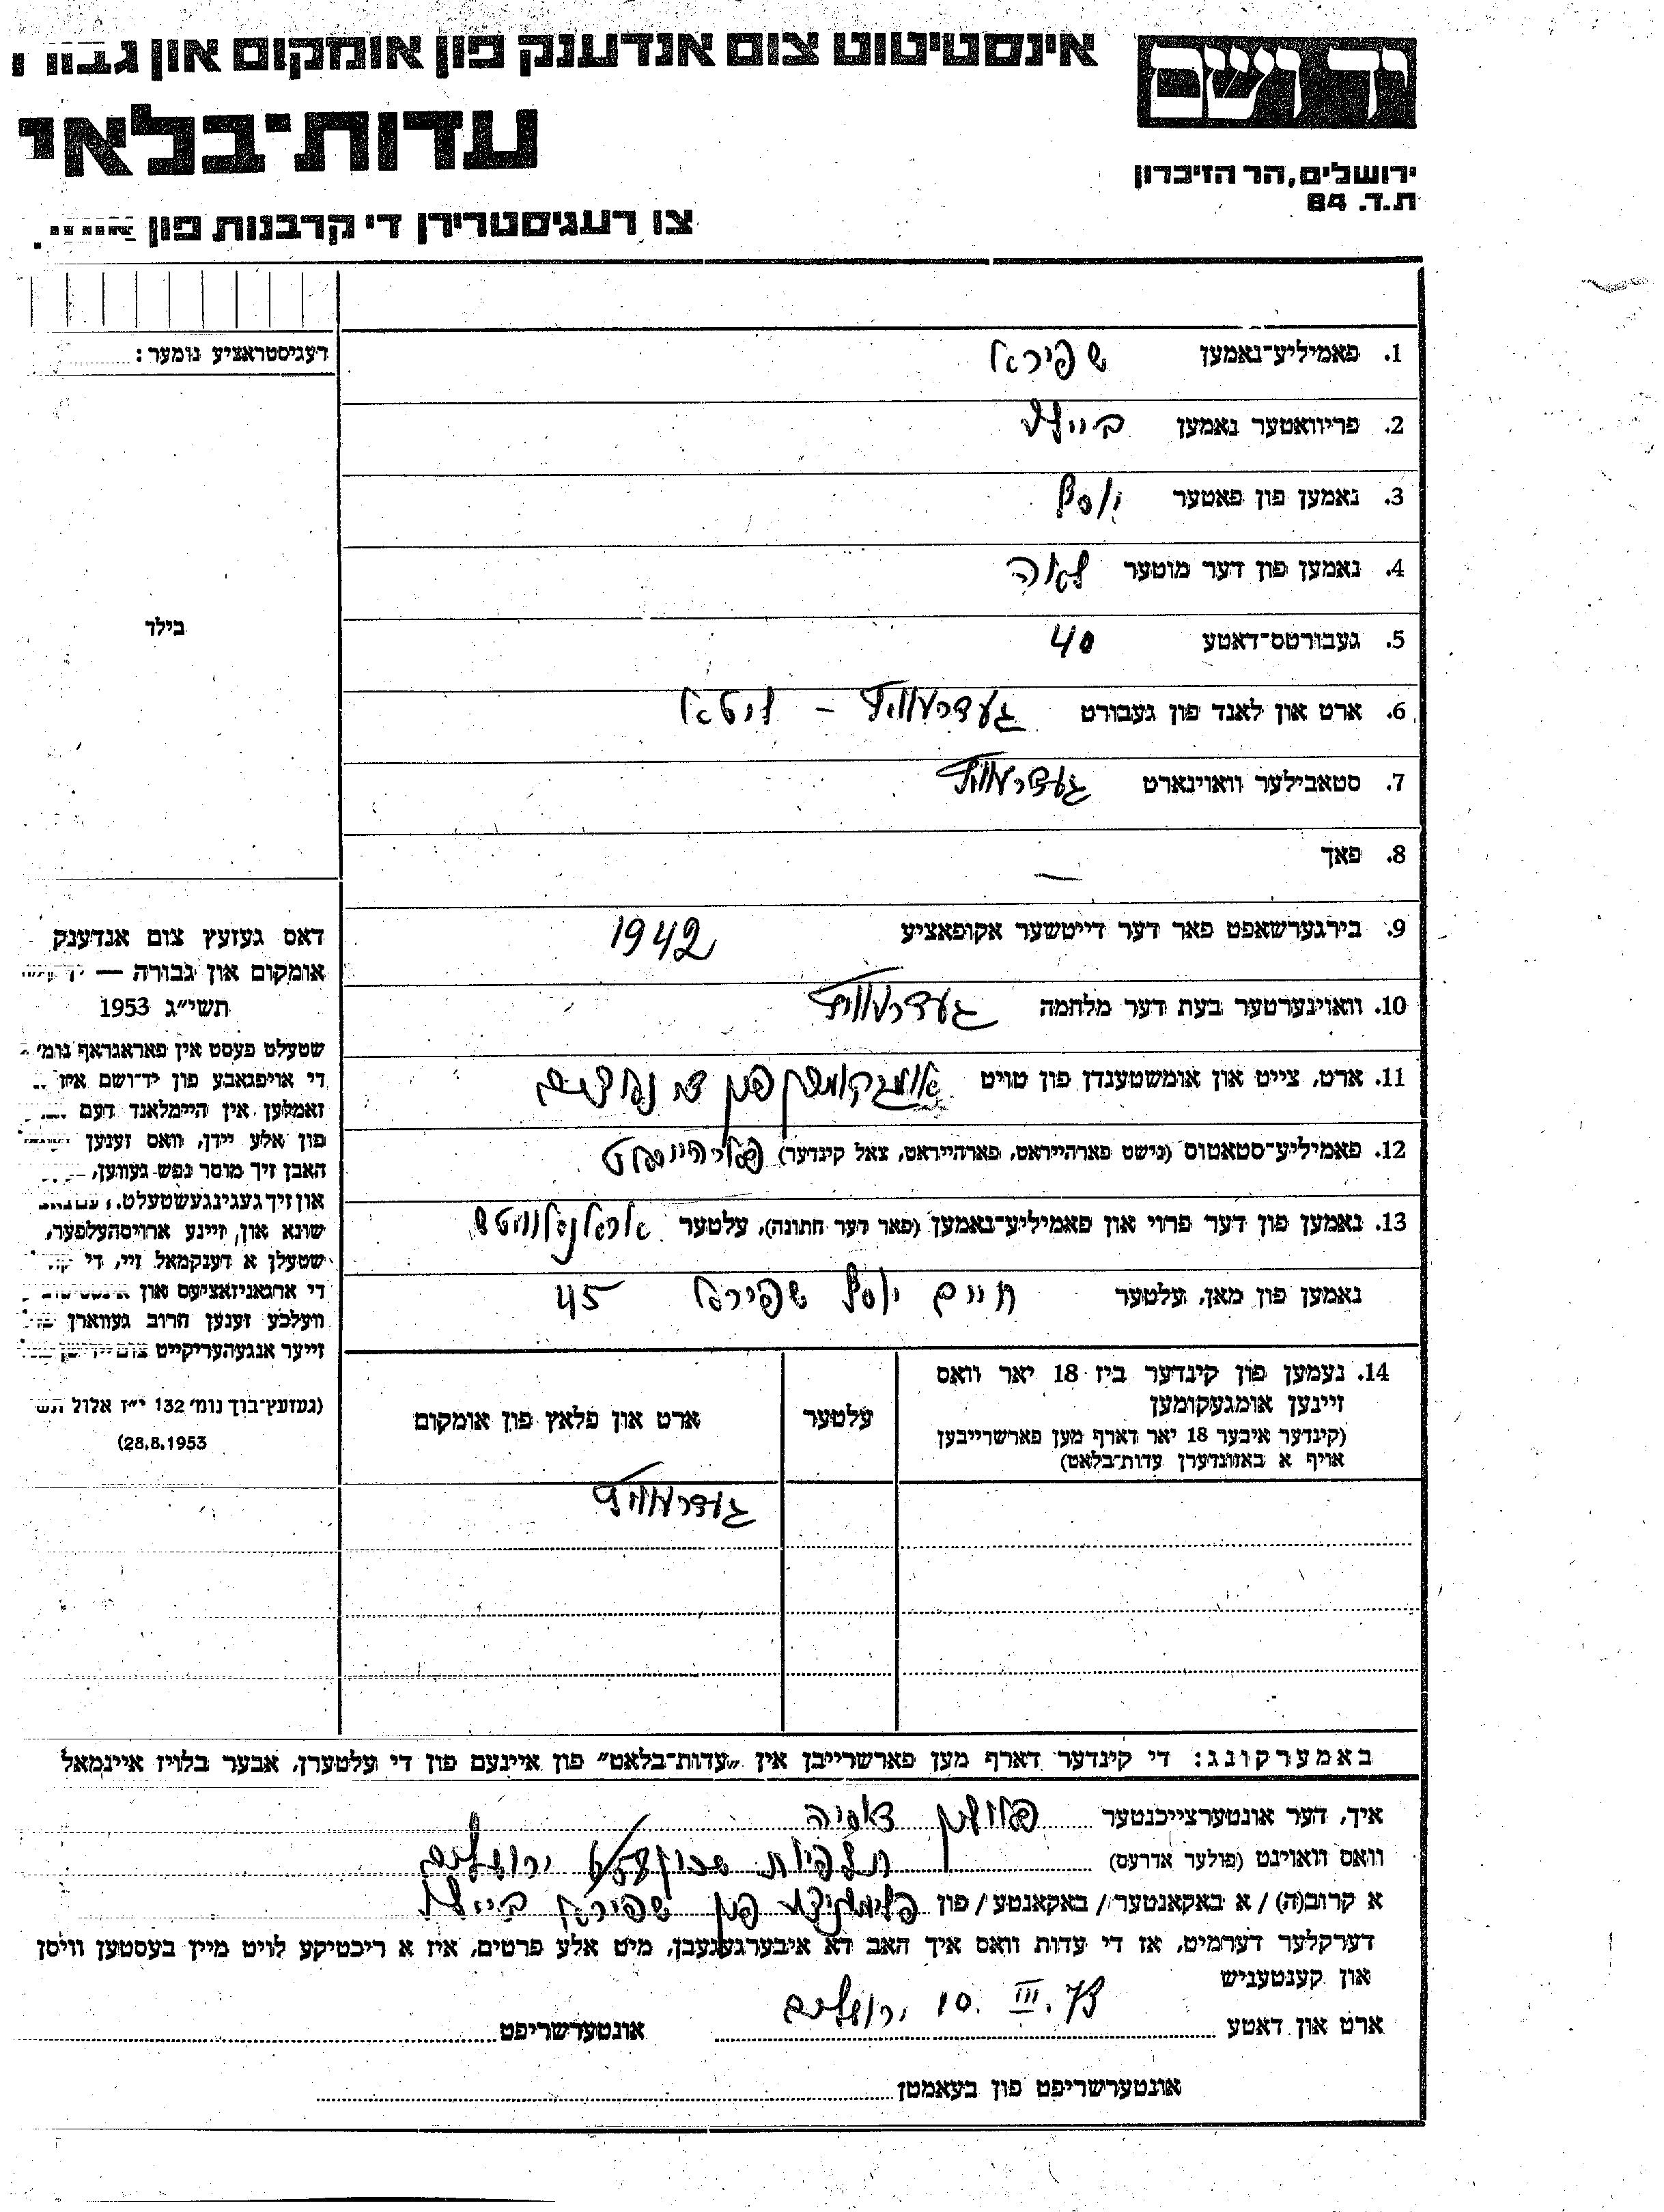 אינסטיטוט צום אנדענק פון אומקום און
יד ושם
עדות־בלאַ
ירושלים, הר הזיכרון
ת.ד. 84
צו רעגיסטרירן די קרבנות פון
רעגיסטראציע נומער:
1. פאמיליע־נאמען שפירא
2. פריוואטער נאמען ביילע
3. נאמען פון פאטער יוסף
4. נאמען פון דער מוטער לאה
5. געבורטס־דאטע 40
6. ארט און לאנד פון געבורט געדרעוויץ – ליטא
7. סטאבילער וואוינארט געדרעוויץ
8. פאך —
9. בירגערשאפט פאר דער דייטשער אקופאציע 1942
10. וואוינערטער בעת דער מלחמה געדרעוויץ
11. ארט, צייט און אומשטענדן פון טויט אומגעקומען פון די נאצים
12. פאמיליע־סטאטוס (נישט פארהייראט, פארהייראט, צאל קינדער)
13. נאמען פון דער פרוי און פאמיליע־נאמען (פאר דער חתונה), עלטער
נאמען פון מאן, עלטער חיים יוסף שפירא 45
14. נעמען פון קינדער ביז 18 יאר וואס
זיינען אומגעקומען
(קינדער איבער 18 יאר דארף מען פארשרייבן
אויף א באזונדערן עדות־בלאט)
עלטער
ארט און פלאץ פון אומקום
געדרעוויץ
בילד
דאס געזעץ צום אנדענק
אומקום און גבורה —
תשי״ג 1953
שטעלט פעסט אין פאראגראף נומ׳
די אויפגאבע פון יד־ושם איז
זאמלען אין היימלאנד דעם
פון אלע יידן, וואס זענען
האבן זיך מוסר נפש געווען,
און זיך געגינגעשטעלט.
שונא און, זיינע ארויסהעלפער,
שטעלן א דענקמאל זיי, די
די ארגאניזאציעס און
וועלכע זענען חרוב געווארן
זייער אנגעהעריקייט
(געזעץ־בוך נומ׳ 132 י״ז אלול תש
28.8.1953)
באמערקונג: די קינדער דארף מען פארשרייבן אין „עדות־בלאט״ פון איינעם פון די עלטערן, אבער בלויז איינמאל
איך, דער אונטערצייכנטער
וואס וואוינט (פולער אדרעס) תלפיות ירושלים
א קרוב(ה) / א באקאנטער / באקאנטע / פון פלימעניצע פון שפירא ביילע
דערקלער דערמיט, אז די עדות וואס איך האב דא איבערגעגעבן, מיט אלע פרטים, איז א ריכטיקע לויט מיין בעסטען וויסן
און קענטעניש
ארט און דאטע ירושלים 10. III. 73
אונטערשריפט
אונטערשריפט פון בעאמטן